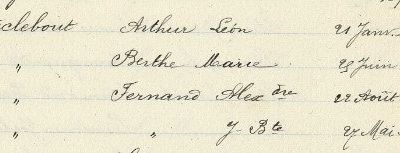 clebout Arthur Léon 21 Janv.
„ Berthe Marie 25 Juin
„ Fernand Alex dre 22 Août
„ „ J. Bte 27 Mai